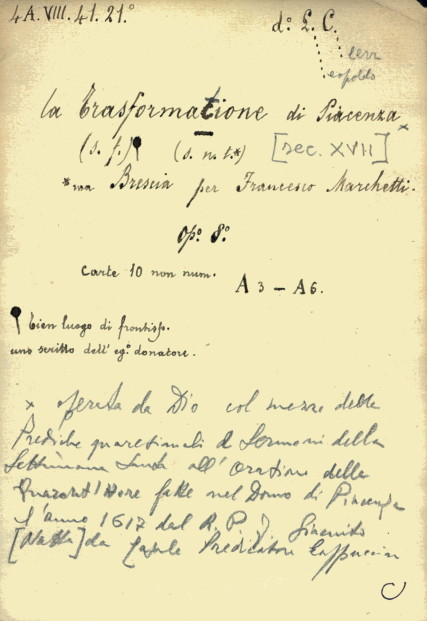 4A.VIII.41.21°
d.° L. C.
Cerr
eopoldo
la Trasformatione di Piacenza ×
(s. f.) (s. n. t.*) [sec. XVII]
*ma Brescia per Francesco Marchetti.
op.° 8.°
Carte 10 non num.
A 3 — A 6.
tien luogo di frontisp.
uno scritto dell' eg.° donatore.
× operata da Dio col mezzo delle
Prediche quaresimali e Sermoni della
Settimana Santa all'Oratione delle
Quarant'Hore fatte nel Domo di Piacenza
l'anno 1617 dal R. P. Giacinto
[Natta] da Casale Predicatore Cappuccin